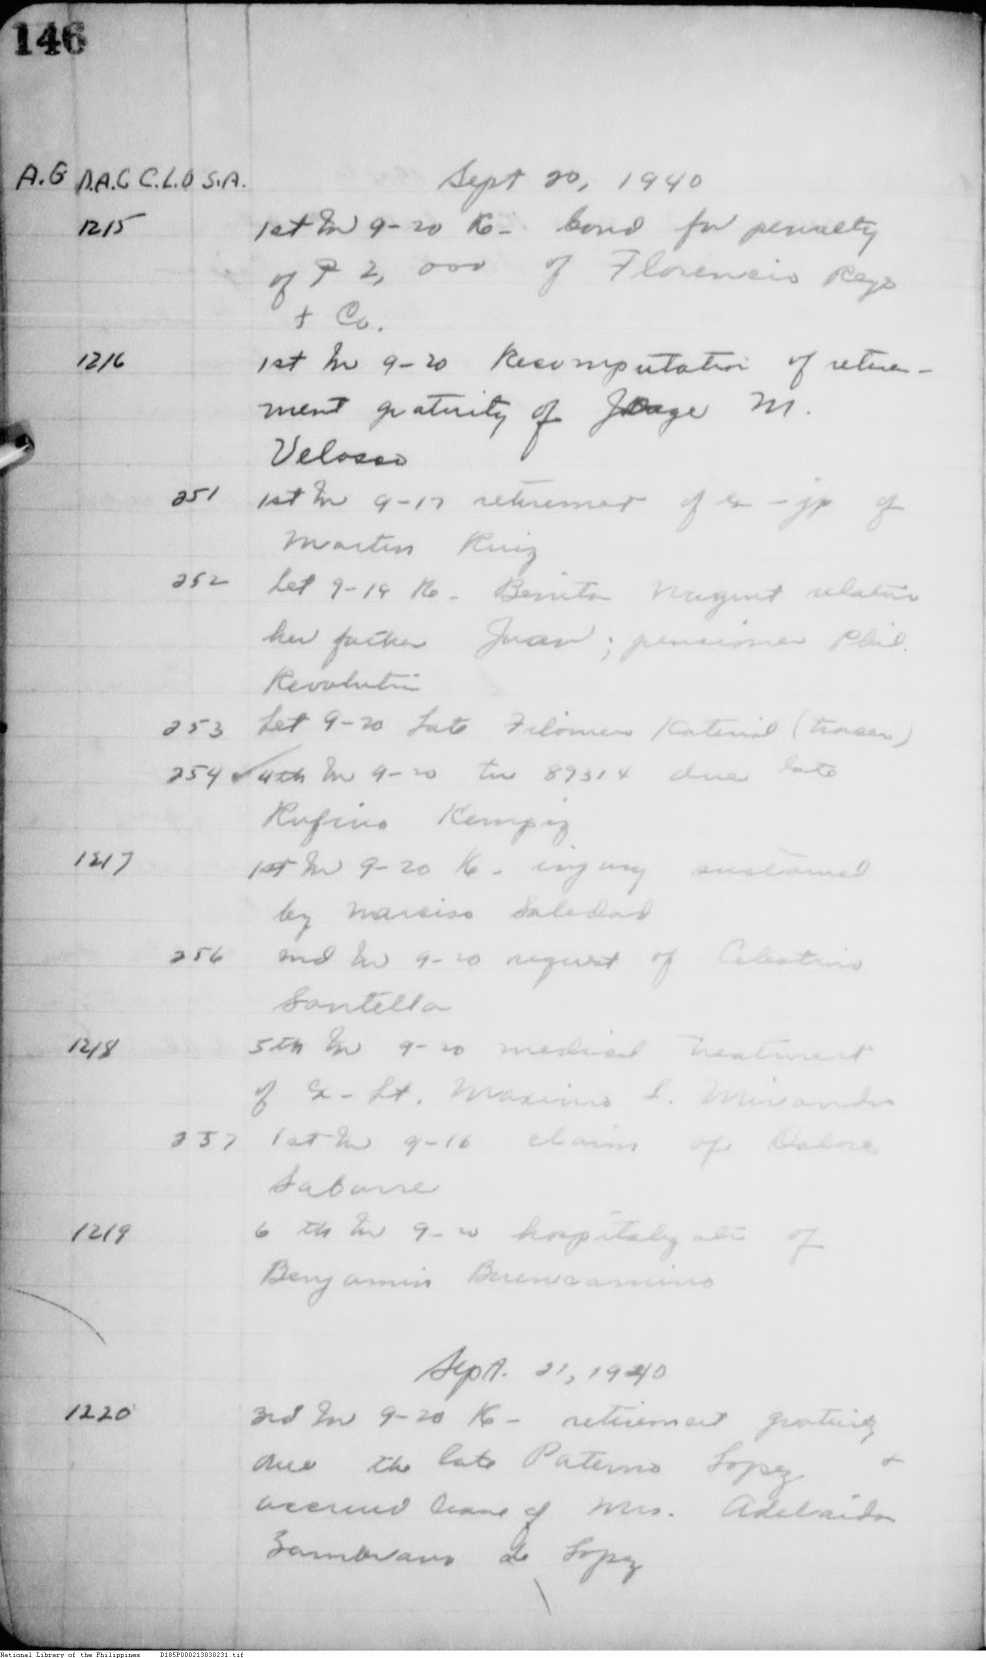 146
A.G D.A.G C.L.O S.A.
Sept 20, 1940
1215 1st In 9-20 Re- bond for penalty
of ₱ 2,000 of Florencio Reyes
+ Co.
1216 1st In 9-20 Recomputation of retire-
ment gratuity of Jorge M.
Velosso
251 1st In 9-17 retirement of ex-jp of
Martin Ruiz
252 Let 9-19 Re- Benita relative
her father Juan; pensioner Phil.
Revolution
253 Let 9-20 Late (tracer)
254 ✓ 4th In 9-20 tw 89314 due late
Rufino
1217 1st In 9-20 Re- injury sustained
by Narciso Soledad
256 2nd In 9-20 request of Celestino
Santella
1218 5th In 9-20 medical treatment
of Ex-Lt. Maximo Miranda
257 1st In 9-16 claim of
1219 6th In 9-20 of
Benjamin Buencamino
Sept. 21, 1940
1220 3rd In 9-20 Re- retirement gratuity
due the late Paterno Lopez +
accrued leave of Mrs. Adelaida
Zambrano de Lopez
National Library of the Philippines D185P000213830231.tif